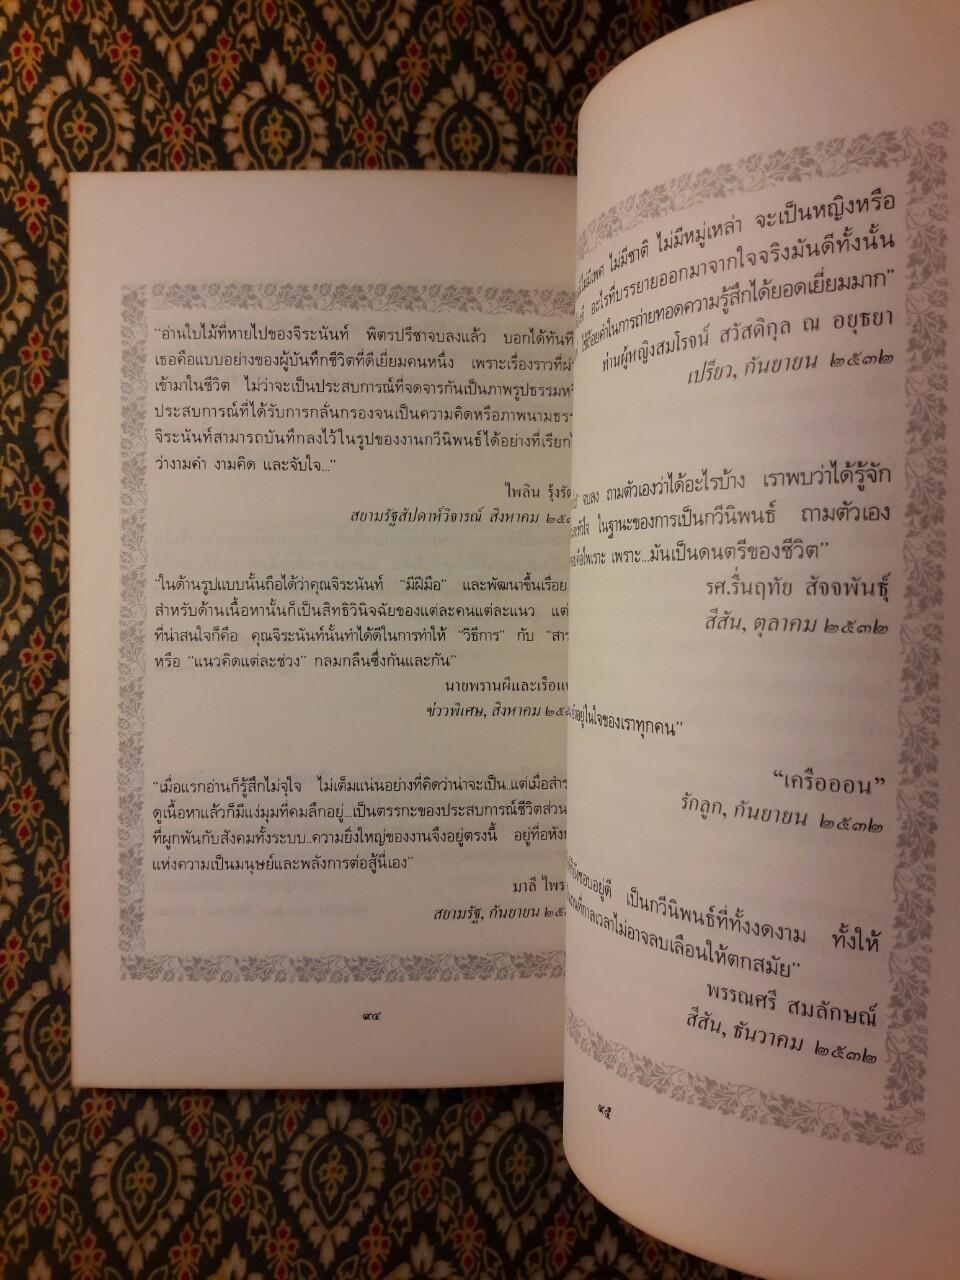 "อ่านใบไม้ที่หายไปของจิระนันท์ พิตรปรีชาจบลงแล้ว บอกได้ทันที
เธอคือแบบอย่างของผู้บันทึกชีวิตที่ดีเยี่ยมคนหนึ่ง เพราะเรื่องราวที่
เข้ามาในชีวิต ไม่ว่าจะเป็นประสบการณ์ที่จดจารกันเป็นภาพรูปธรรม
ประสบการณ์ที่ได้รับการกลั่นกรองจนเป็นความคิดหรือภาพนามธรร
จิระนันท์สามารถบันทึกลงไว้ในรูปของงานกวีนิพนธ์ได้อย่างที่เรียก
ว่างามคำ งามคิด และจับใจ..."
ไพลิน รุ้งรัต
สยามรัฐสัปดาห์วิจารณ์ สิงหาคม
"ในด้านรูปแบบนั้นถือได้ว่าคุณจิระนันท์ "มีฝีมือ" และพัฒนาขึ้นเรื่อย
สำหรับด้านเนื้อหานั้นก็เป็นสิทธิวินิจฉัยของแต่ละคนแต่ละแนว แต่
ที่น่าสนใจก็คือ คุณจิระนันท์นั้นทำได้ดีในการทำให้ "วิธีการ" กับ "สาร
หรือ "แนวคิดแต่ละช่วง" กลมกลืนซึ่งกันและกัน"
นายพรานผีและเรือ
ข่าวพิเศษ, สิงหาคม
"เมื่อแรกอ่านก็รู้สึกไม่จุใจ ไม่เต็มแน่นอย่างที่คิดว่าน่าจะเป็น..แต่เมื่อสำร
ดูเนื้อหาแล้วก็มีแง่มุมที่คมลึกอยู่...เป็นตรรกะของประสบการณ์ชีวิตส่วน
ที่ผูกพันกับสังคมทั้งระบบ..ความยิ่งใหญ่ของงานจึงอยู่ตรงนี้ อยู่ที่อหัง
แห่งความเป็นมนุษย์และพลังการต่อสู้นี่เอง"
มาลี ไพร
สยามรัฐ, กันยายน
๙๔
ไม่มีเพศ ไม่มีชาติ ไม่มีหมู่เหล่า จะเป็นหญิงหรือ
อะไรที่บรรยายออกมาจากใจจริงมันดีทั้งนั้น
ใช้ถ้อยคำในการถ่ายทอดความรู้สึกได้ยอดเยี่ยมมาก"
ท่านผู้หญิงสมโรจน์ สวัสดิกุล ณ อยุธยา
เปรียว, กันยายน ๒๕๓๒
จบลง ถามตัวเองว่าได้อะไรบ้าง เราพบว่าได้รู้จัก
ในฐานะของการเป็นกวีนิพนธ์ ถามตัวเอง
ไพเราะ เพราะ...มันเป็นดนตรีของชีวิต"
รศ.รื่นฤทัย สัจจพันธุ์
สีสัน, ตุลาคม ๒๕๓๒
อยู่ในใจของเราทุกคน"
"เครือออน"
รักลูก, กันยายน ๒๕๓๒
ชอบอยู่ดี เป็นกวีนิพนธ์ที่ทั้งงดงาม ทั้งให้
ที่กาลเวลาไม่อาจลบเลือนให้ตกสมัย"
พรรณศรี สมลักษณ์
สีสัน, ธันวาคม ๒๕๓๒
๙๕